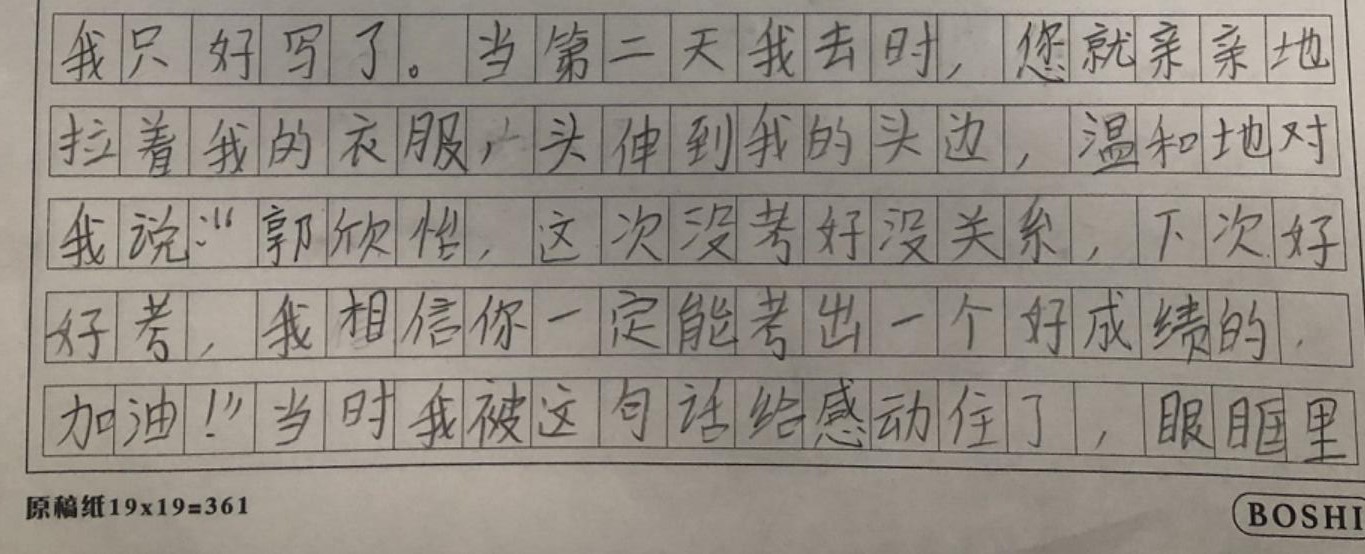 我只好写了。当第二天我去时，您就亲亲地
拉着我的衣服，头伸到我的头边，温和地对
我说：“郭欣怡，这次没考好没关系，下次好
好考，我相信你一定能考出一个好成绩的，
加油！”当时我被这句话给感动住了，眼眶里
原稿纸19x19=361
BOSHI